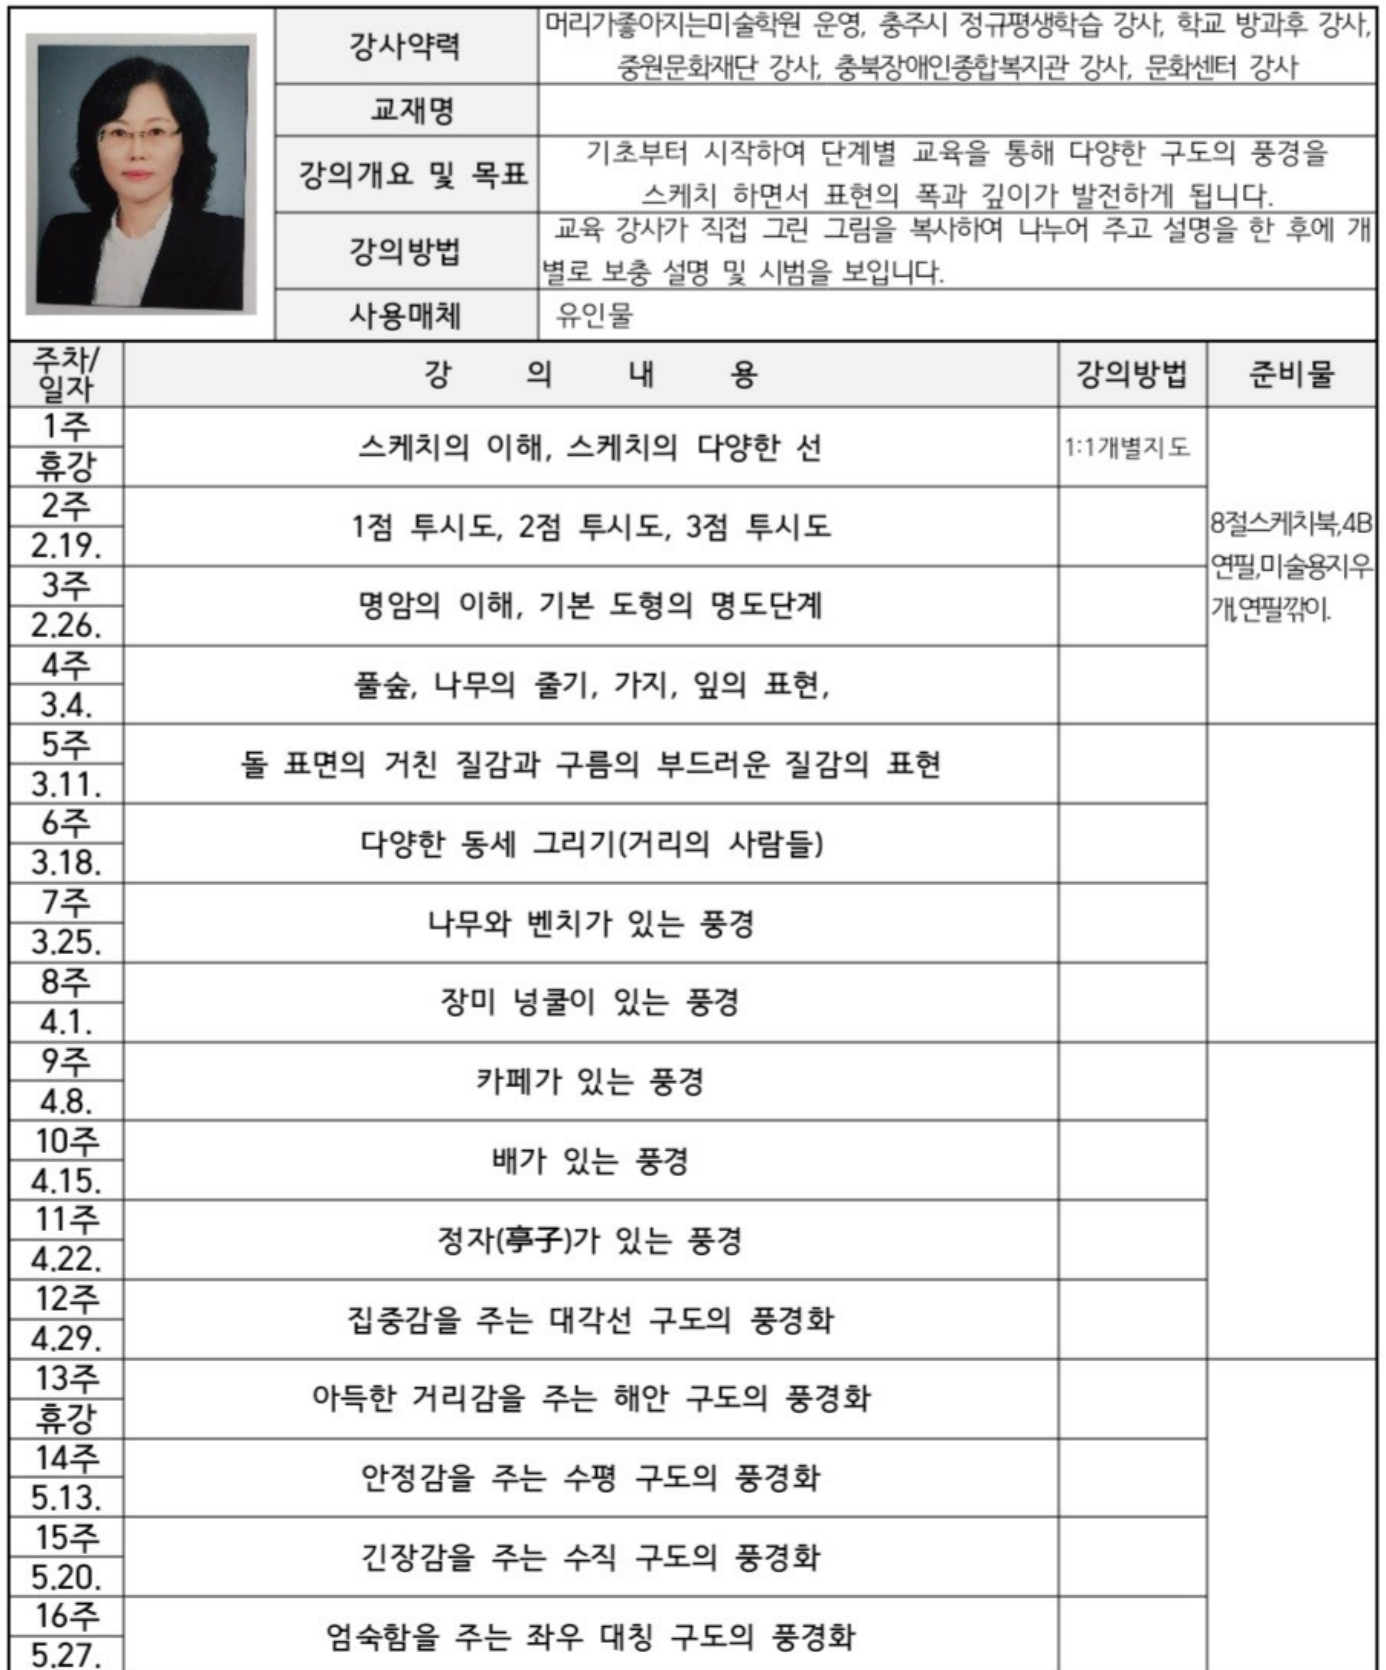 강사약력
머리가좋아지는미술학원 운영, 충주시 정규평생학습 강사, 학교 방과후 강사,
중원문화재단 강사, 충북장애인종합복지관 강사, 문화센터 강사
교재명
강의개요 및 목표
기초부터 시작하여 단계별 교육을 통해 다양한 구도의 풍경을
스케치 하면서 표현의 폭과 깊이가 발전하게 됩니다.
강의방법
교육 강사가 직접 그린 그림을 복사하여 나누어 주고 설명을 한 후에 개
별로 보충 설명 및 시범을 보입니다.
사용매체
유인물
주차/
일자
강 의 내 용
강의방법
준비물
1주
휴강
스케치의 이해, 스케치의 다양한 선
1:1개별지도
8절스케치북,4B
연필,미술용지우
개,연필깎이.
2주
2.19.
1점 투시도, 2점 투시도, 3점 투시도
3주
2.26.
명암의 이해, 기본 도형의 명도단계
4주
3.4.
풀숲, 나무의 줄기, 가지, 잎의 표현,
5주
3.11.
돌 표면의 거친 질감과 구름의 부드러운 질감의 표현
6주
3.18.
다양한 동세 그리기(거리의 사람들)
7주
3.25.
나무와 벤치가 있는 풍경
8주
4.1.
장미 넝쿨이 있는 풍경
9주
4.8.
카페가 있는 풍경
10주
4.15.
배가 있는 풍경
11주
4.22.
정자(亭子)가 있는 풍경
12주
4.29.
집중감을 주는 대각선 구도의 풍경화
13주
휴강
아득한 거리감을 주는 해안 구도의 풍경화
14주
5.13.
안정감을 주는 수평 구도의 풍경화
15주
5.20.
긴장감을 주는 수직 구도의 풍경화
16주
5.27.
엄숙함을 주는 좌우 대칭 구도의 풍경화